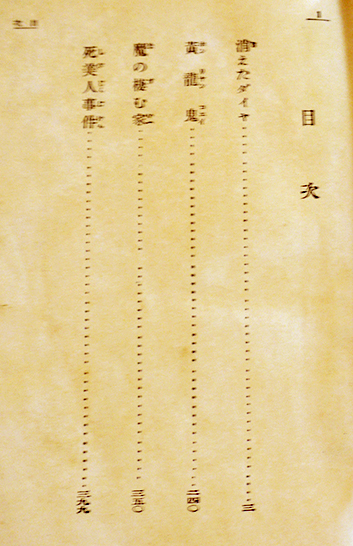 1
目次
消えたダイヤ……三
黄龍鬼……二四〇
魔の棲む家……三五〇
死美人事件……三九九
目次